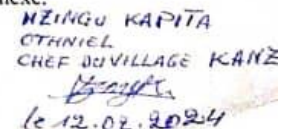 nexe.
NZINGU KAPITA
OTHNIEL
CHEF DU VILLAGE KANZ
le 12.02.2024